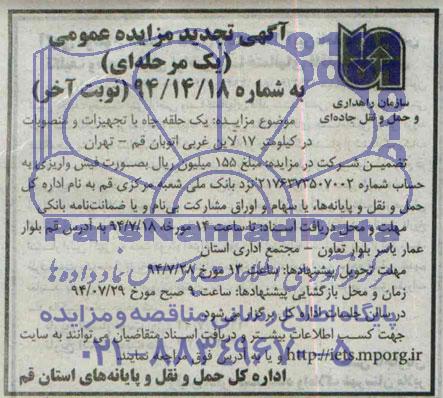 آگهی تجدید مزایده عمومی
(یک مرحله‌ای)
به شماره ۹۴/۱۴/۱۸ (نوبت آخر)
سازمان راهداری
و حمل و نقل جاده‌ای
موضوع مزایده: یک حلقه چاه با تجهیزات و منصوبات
در کیلومتر ۱۷ لاین غربی اتوبان قم - تهران
تضمین شرکت در مزایده: مبلغ ۱۵۵ میلیون ریال بصورت فیش واریزی به
حساب شماره ۲۱۷۶۳۷۳۵۰۷۰۰۲ نزد بانک ملی شعبه مرکزی قم به نام اداره کل
حمل و نقل و پایانه‌ها، یا سهام و اوراق مشارکت بی‌نام و یا ضمانت‌نامه بانکی
مهلت و محل دریافت اسناد: تا ساعت ۱۴ مورخه ۹۴/۷/۱۸ به آدرس قم بلوار
عمار یاسر بلوار تعاون - مجتمع اداری استان
مهلت تحویل پیشنهادها: ساعت ۱۴ مورخ ۹۴/۷/۲۸
زمان و محل بازگشایی پیشنهادها: ساعت ۹ صبح مورخ ۹۴/۰۷/۲۹
در سالن جلسات اداره کل برگزار می‌شود.
جهت کسب اطلاعات بیشتر و دریافت اسناد متقاضیان می‌توانند به سایت
http://iets.mporg.ir و یا به آدرس فوق مراجعه نمایند.
اداره کل حمل و نقل و پایانه‌های استان قم
ParsNamadData
پایگاه اطلاع رسانی مناقصه و مزایده
۰۲۱-۸۸۳۴۹۶۷۰-۵